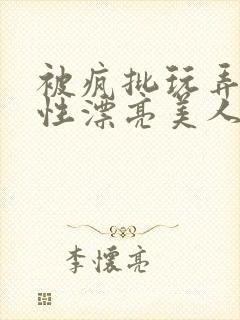 被疯批玩弄
性漂亮美人
李怀亮